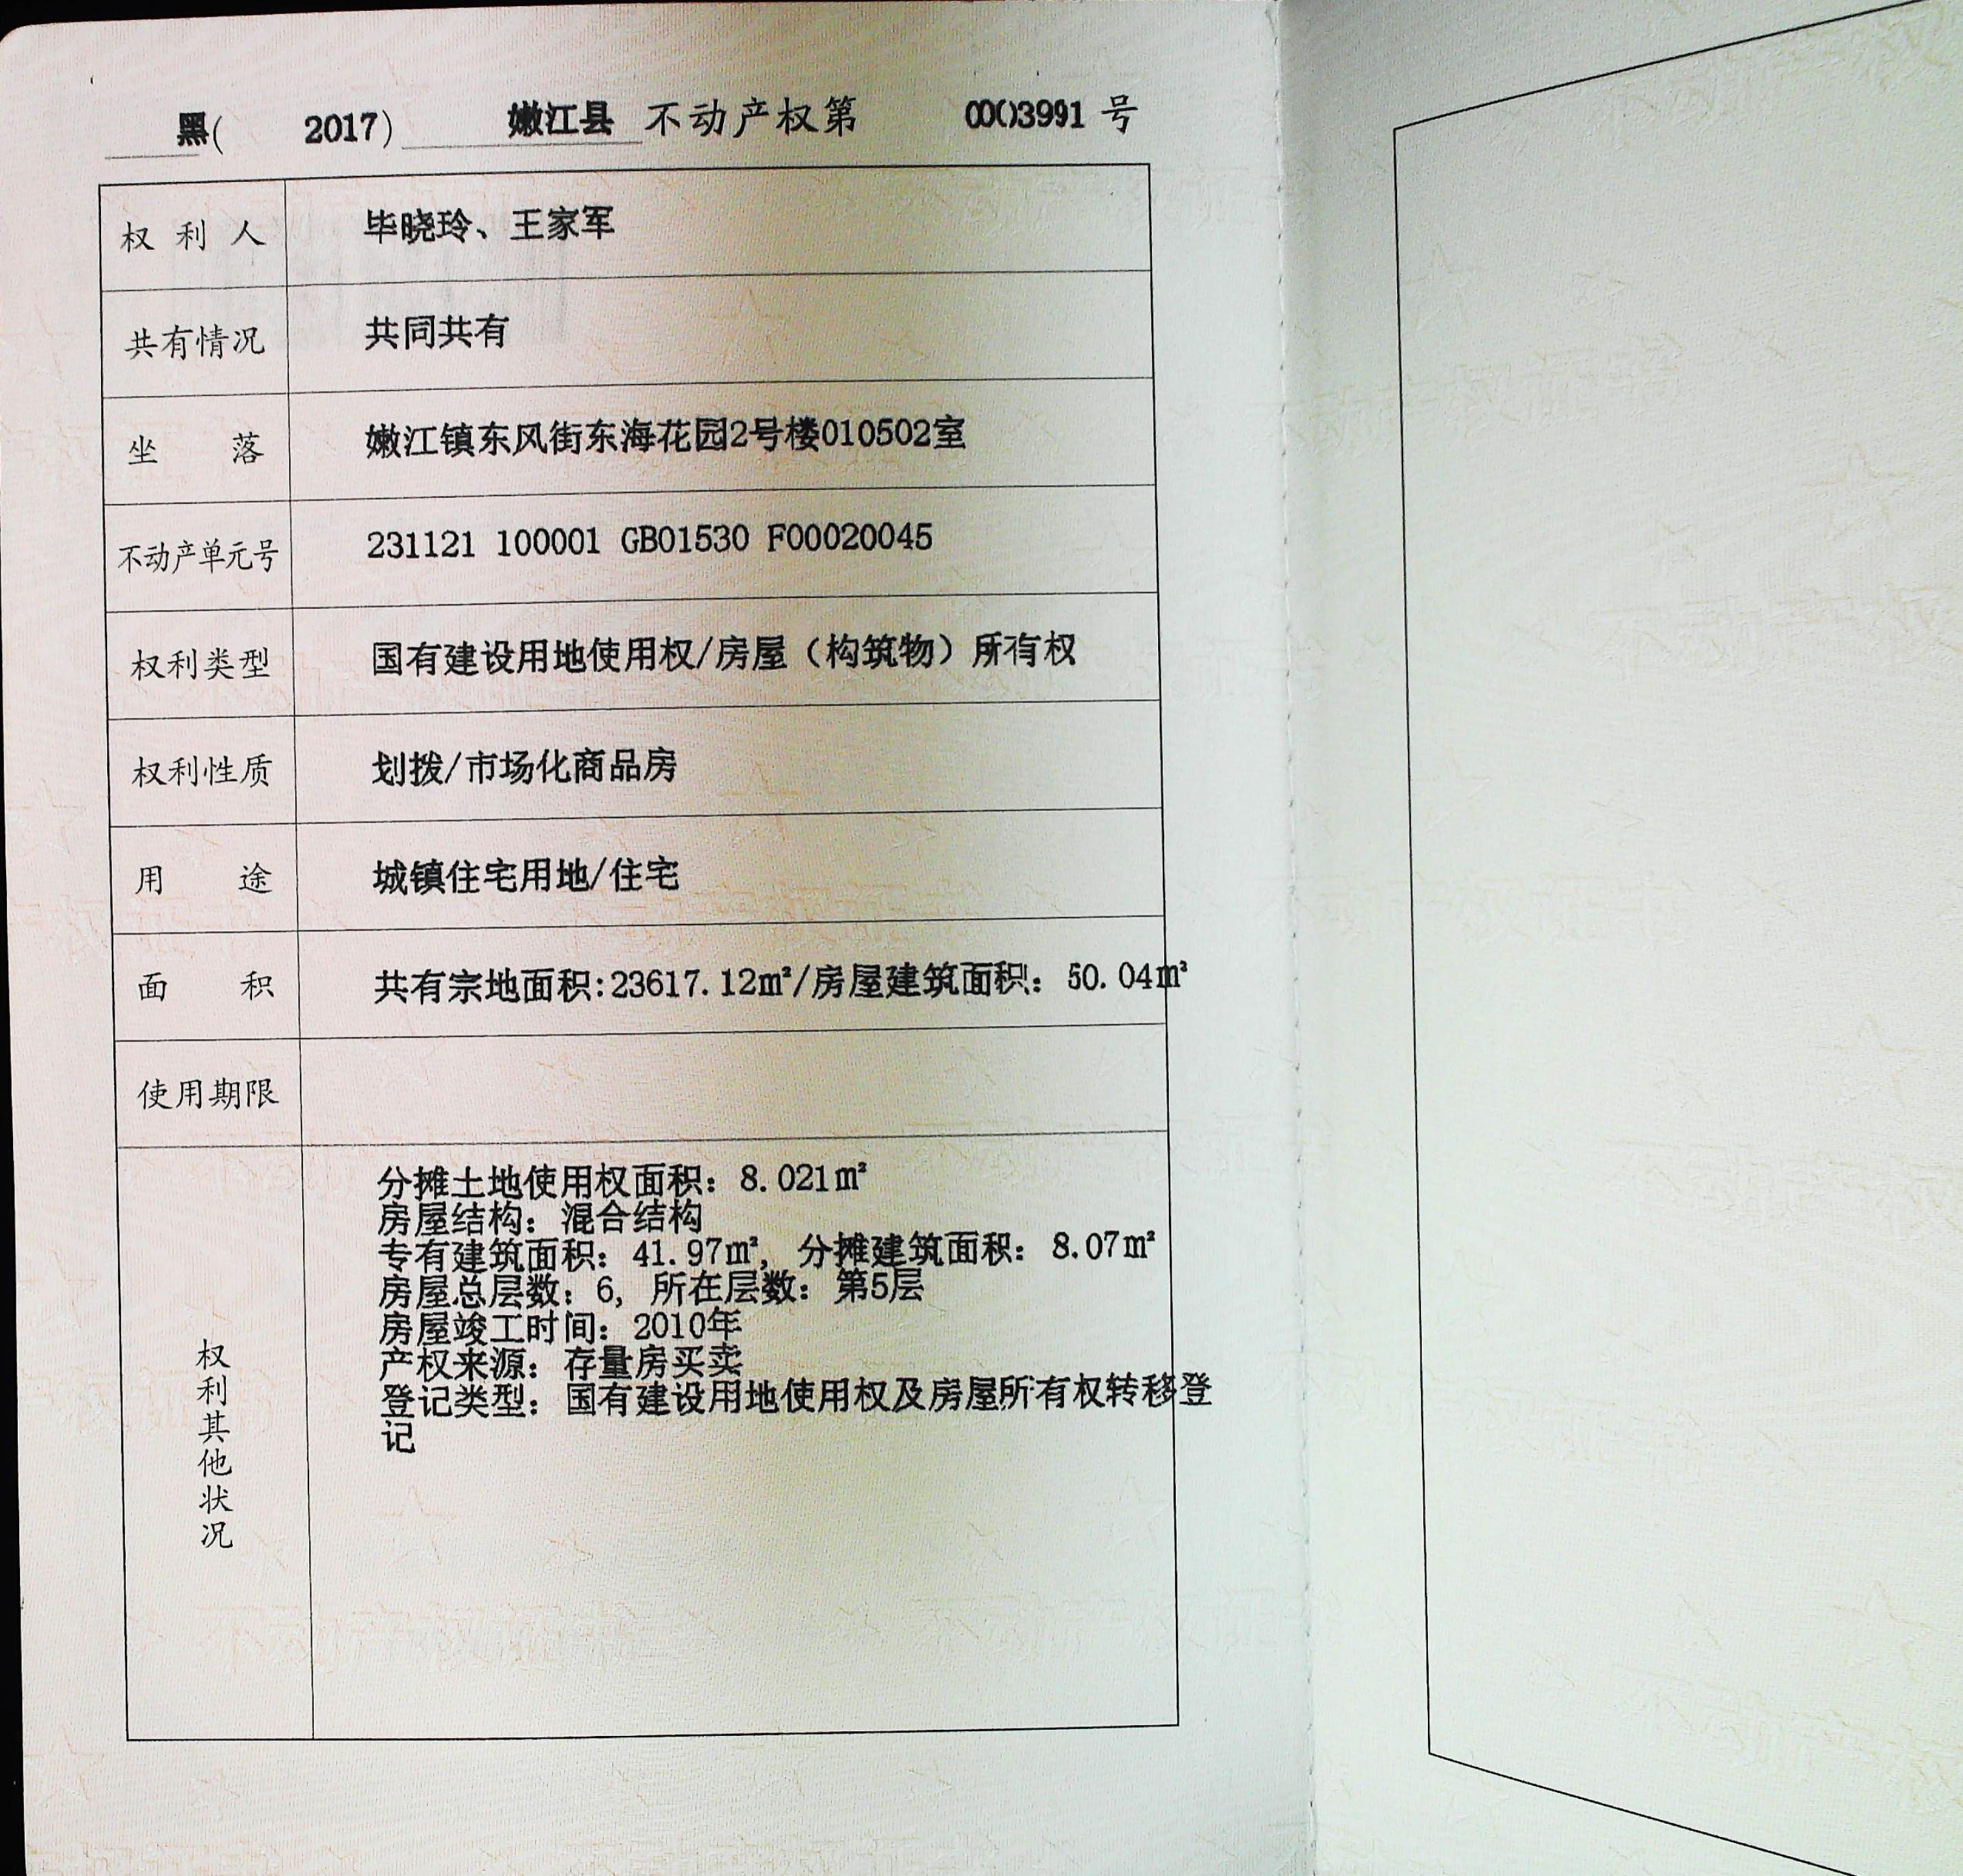 黑( 2017) 嫩江县 不动产权第 0003991 号
权利人 毕晓玲、王家军
共有情况 共同共有
坐落 嫩江镇东风街东海花园2号楼010502室
不动产单元号 231121 100001 GB01530 F00020045
权利类型 国有建设用地使用权/房屋（构筑物）所有权
权利性质 划拨/市场化商品房
用途 城镇住宅用地/住宅
面积 共有宗地面积:23617.12㎡/房屋建筑面积：50.04㎡
使用期限
权利其他状况
分摊土地使用权面积：8.021㎡
房屋结构：混合结构
专有建筑面积：41.97㎡，分摊建筑面积：8.07㎡
房屋总层数：6，所在层数：第5层
房屋竣工时间：2010年
产权来源：存量房买卖
登记类型：国有建设用地使用权及房屋所有权转移登
记